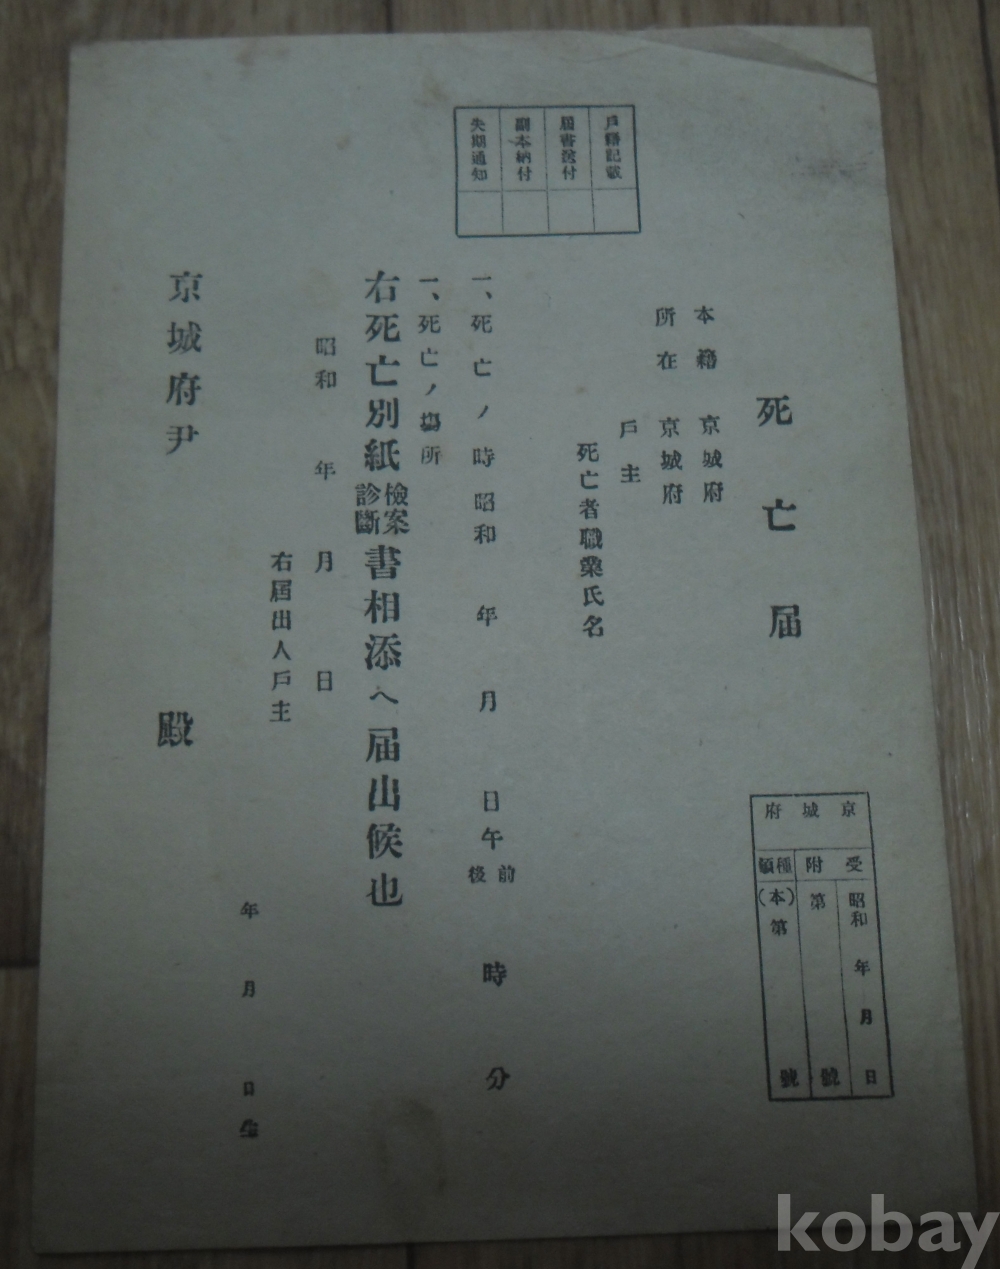 戶籍記載
屆書送付
副本納付
失期通知
死亡屆
本籍 京城府
所在 京城府
戶主
死亡者職業氏名
一、死亡ノ時 昭和 年 月 日午 前後 時 分
一、死亡ノ場所
右死亡別紙 檢案 診斷 書相添ヘ屆出候也
昭和 年 月 日
右屆出人戶主
年 月 日生
京城府尹 殿
京城府
受附
種類
昭和 年 月 日
第 號
(本)第 號
kobay